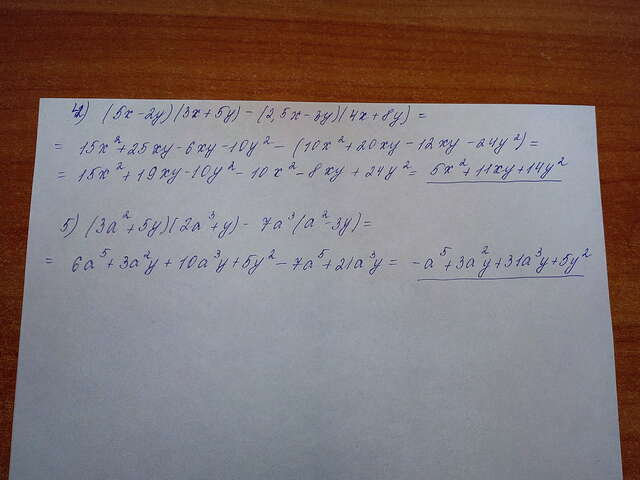 4) (5x-2y)(3x+5y)-(2,5x-3y)(4x+8y)=
= 15x²+25xy-6xy-10y²-(10x²+20xy-12xy-24y²)=
= 15x²+19xy-10y²-10x²-8xy+24y²= 5x²+11xy+14y²
5) (3a²+5y)(2a³+y)-7a³(a²-3y)=
= 6a⁵+3a²y+10a³y+5y²-7a⁵+21a³y= -a⁵+3a²y+31a³y+5y²